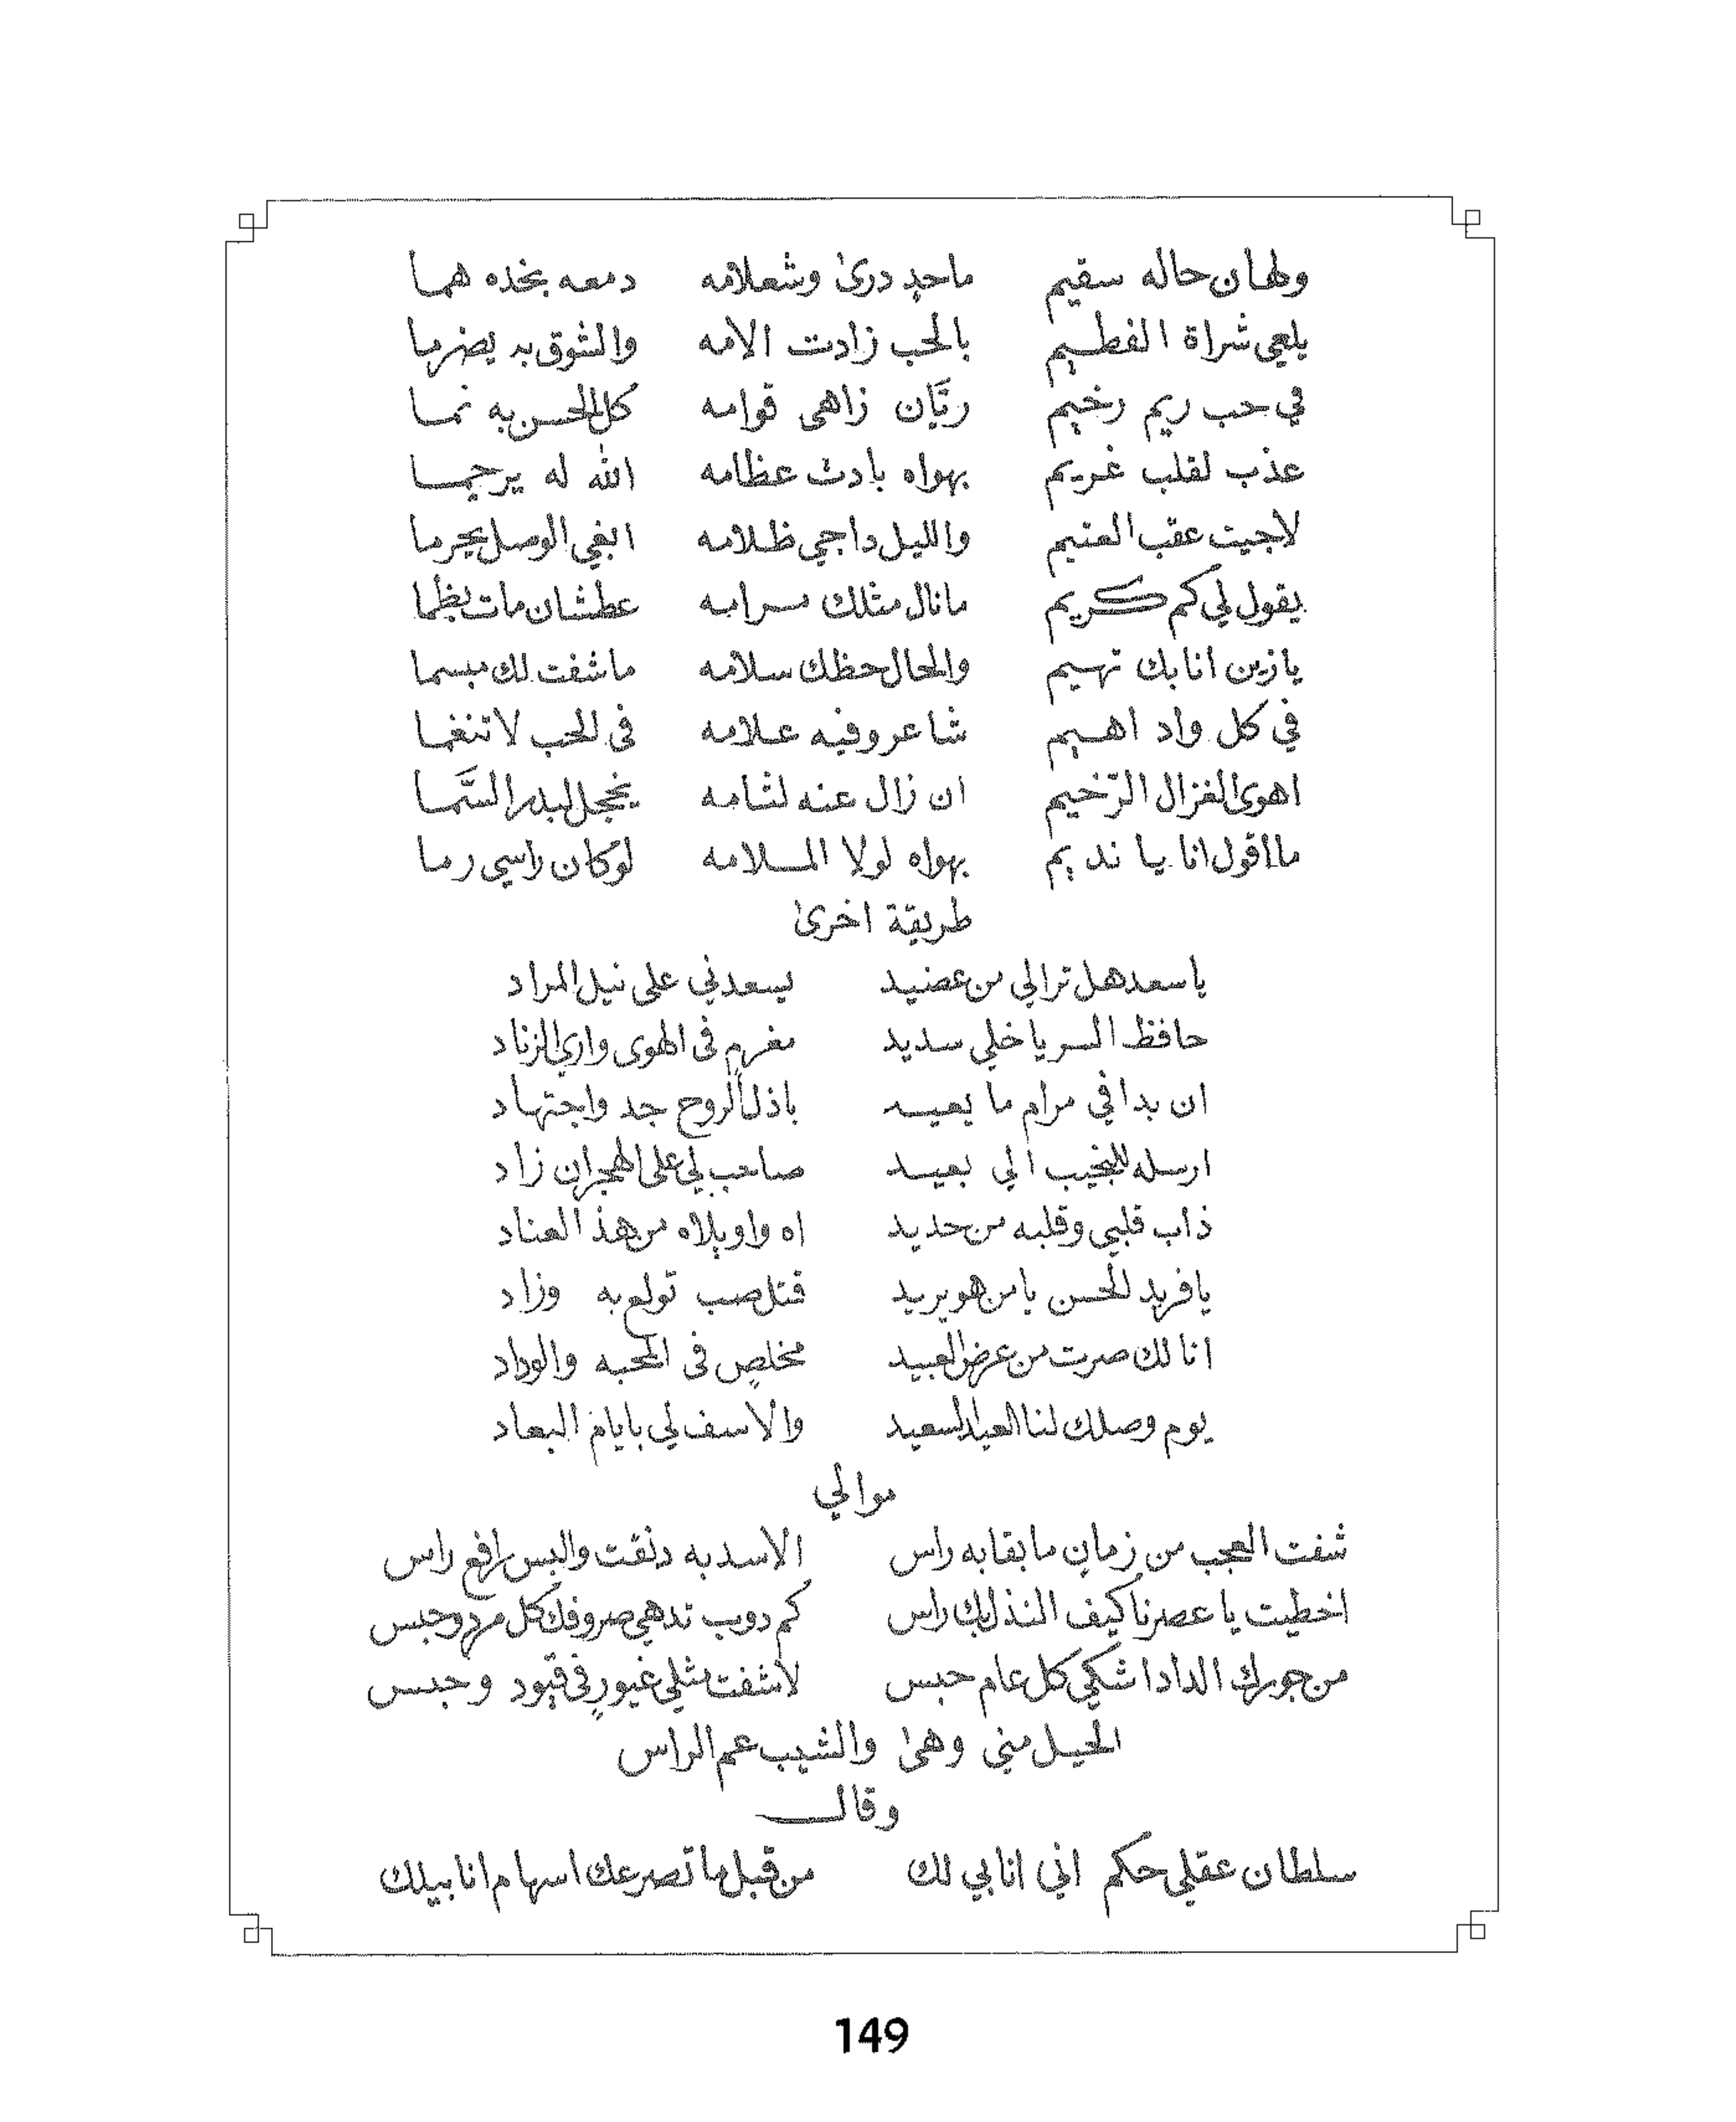 ولهان حاله سقيم ماحدٍ درىٰ وشعلامه دمعه بخده هما
يلعي شراة الفطيم بالحب زادت الامه والشوق به يضرما
في حب ريم رخيم ريَّان زاهى قوامه كل الحسن به نما
عذب لقلب غريم بهواه بادت عظامه الله له يرحما
لاجيت عقب العتيم والليل داجي ظلامه ابغي الوصل يحرما
يقول لي كم كريم مانال مثلك مرامه عطشان مات بظما
يازين انا بك نهيم والحال حظك سلامه ماشفت لك مبسما
في كل واد اهيم شاعر وفيه علامه فى الحب لا تنغما
اهوى الغزال الرّخيم ان زال عنه لثامه يخجل لبدر السَّما
ما اقول انا يا نديم بهواه لولا الملامه لو كان راسي رما
طريقة اخرىٰ
ياسعد هل ترالي من عضيد يسعدني على نيل المراد
حافظ السر يا خلي سديد مغرمٍ فى الهوى واري الزناد
ان بدا في مرام ما يعيد باذل الروح جد واجتهاد
ارسله للنجيب الي بعيد صاحبٍ لي على الهجران زاد
ذاب قلبي وقلبه من حديد اه واويلاه من هذ العناد
يا فريد الحسن يا من هو يريد قتل صب تولع به وزاد
انا لك صرت من عرض العبيد مخلصٍ فى المحبه والوداد
يوم وصلك لنا العيد السعيد والاسف لي بايام البعاد
موالي
شفت العجب من زمانٍ ما بقابه راس الاسد به دنقت والبس رافع راس
اخطيت يا عصرنا كيف النذل بك راس كم دوب تدهي صروفك كل مرد وحبس
من جورك الداد اشكي كل عام حبس لاشفت مثلي غيورٍ فى قيود وحبس
الحيل مني وهىٰ والشيب عم الراس
وقال
سلطان عقلي حكم اني انابي لك من قبل ما تصرعك اسهام انابيلك
149